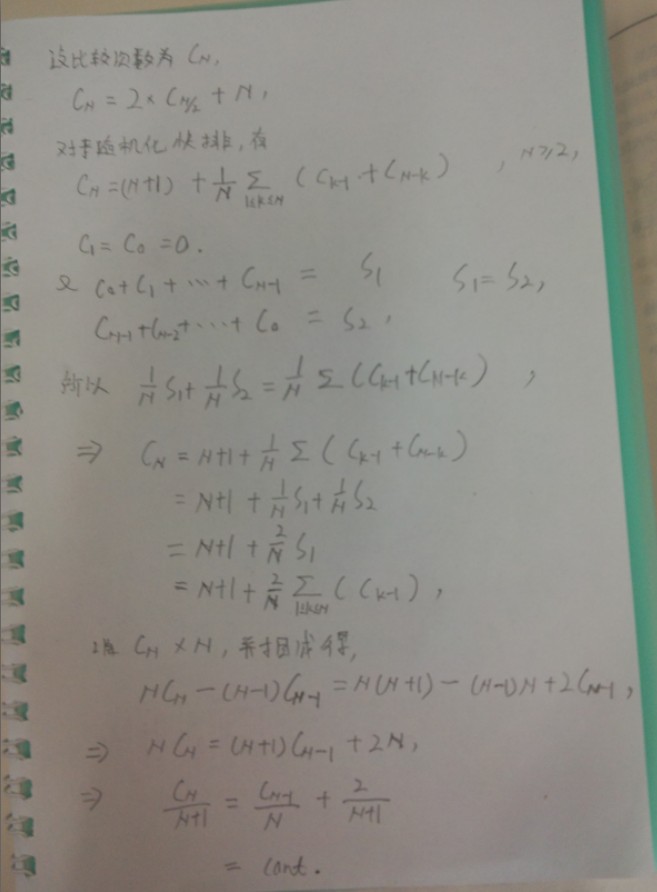 设比较次数为 C_N,
C_N = 2 × C_{N/2} + N,
对于随机化快排, 有
C_N = (N+1) + \frac{1}{N} \sum_{1≤k≤N} (C_{k-1} + C_{N-k}) , N≥2,
C_1 = C_0 = 0.
又 C_0 + C_1 + ··· + C_{N-1} = S_1 S_1 = S_2,
C_{N-1} + C_{N-2} + ··· + C_0 = S_2,
所以 \frac{1}{N} S_1 + \frac{1}{N} S_2 = \frac{1}{N} Σ (C_{k-1} + C_{N-k}) ,
⇒ C_N = N+1 + \frac{1}{N} Σ (C_{k-1} + C_{N-k})
= N+1 + \frac{1}{N} S_1 + \frac{1}{N} S_2
= N+1 + \frac{2}{N} S_1
= N+1 + \frac{2}{N} \sum_{1≤k≤N} (C_{k-1}) ,
C_N × N, 并相减得,
N C_N - (N-1) C_{N-1} = N(N+1) - (N-1)N + 2C_{N-1} ,
⇒ N C_N = (N+1) C_{N-1} + 2N,
⇒ \frac{C_N}{N+1} = \frac{C_{N-1}}{N} + \frac{2}{N+1}
= cont.